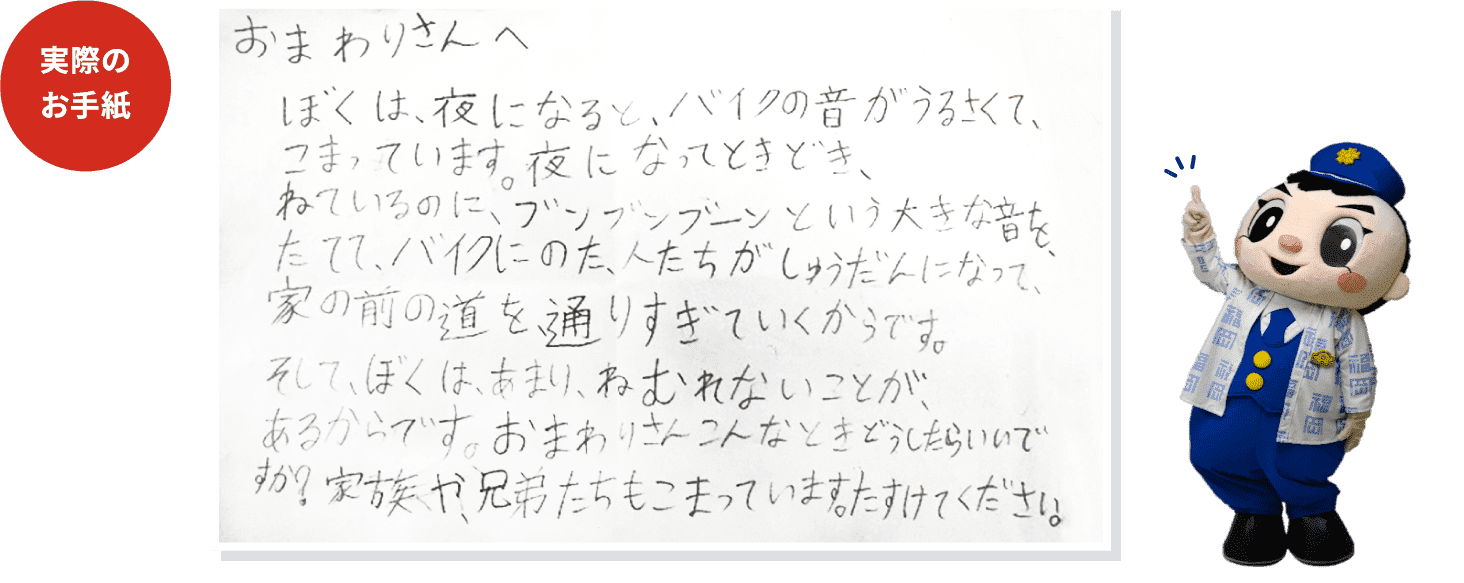 実際の
お手紙
おまわりさんへ
ぼくは、夜になると、バイクの音がうるさくて、
こまっています。夜になってときどき、
ねているのに、ブンブンブーンという大きな音を、
たてて、バイクにのた、人たちがしゅうだんになって、
家の前の道を、通りすぎていくからです。
そして、ぼくは、あまり、ねむれないことが、
あるからです。おまわりさんこんなときどうしたらいいで
すか?家族や、兄弟たちもこまっています。たすけてください。